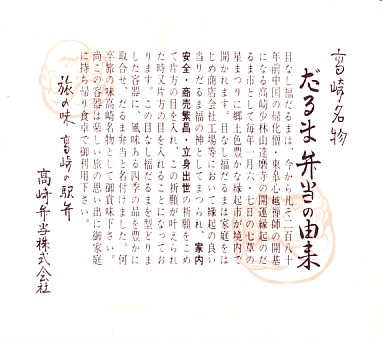 高崎名物
だるま弁当の由来
目なし福だるまは、今から凡そ二百八十
年前中国の帰化僧・東皐心越禅師の開基
になる高崎少林山達磨寺の開運縁起のだ
るま市として毎年一月六、七日の七草の
星まつりに郷土色豊かな縁起市が境内で
開かれます。目なし福だるまは家庭をは
じめ商店会社工場等において縁起の良い
当りだるま福の神としてまつられ、家内
安全・商売繁昌・立身出世の祈願をこめ
て片方の目を入れ、この祈願が叶えられ
た時又片方の目を入れることになってお
ります。この目なし福だるまを型どりま
した容器に、風味ある四季の品を豊かに
取合せ、だるま弁当と名付けました。何
卒旅の味高崎名物として御賞味下さい。
尚この容器は楽しい旅の思い出に御家庭
に持ち帰り食卓で御利用下さい。
旅の味 高崎の駅弁
高崎弁当株式会社